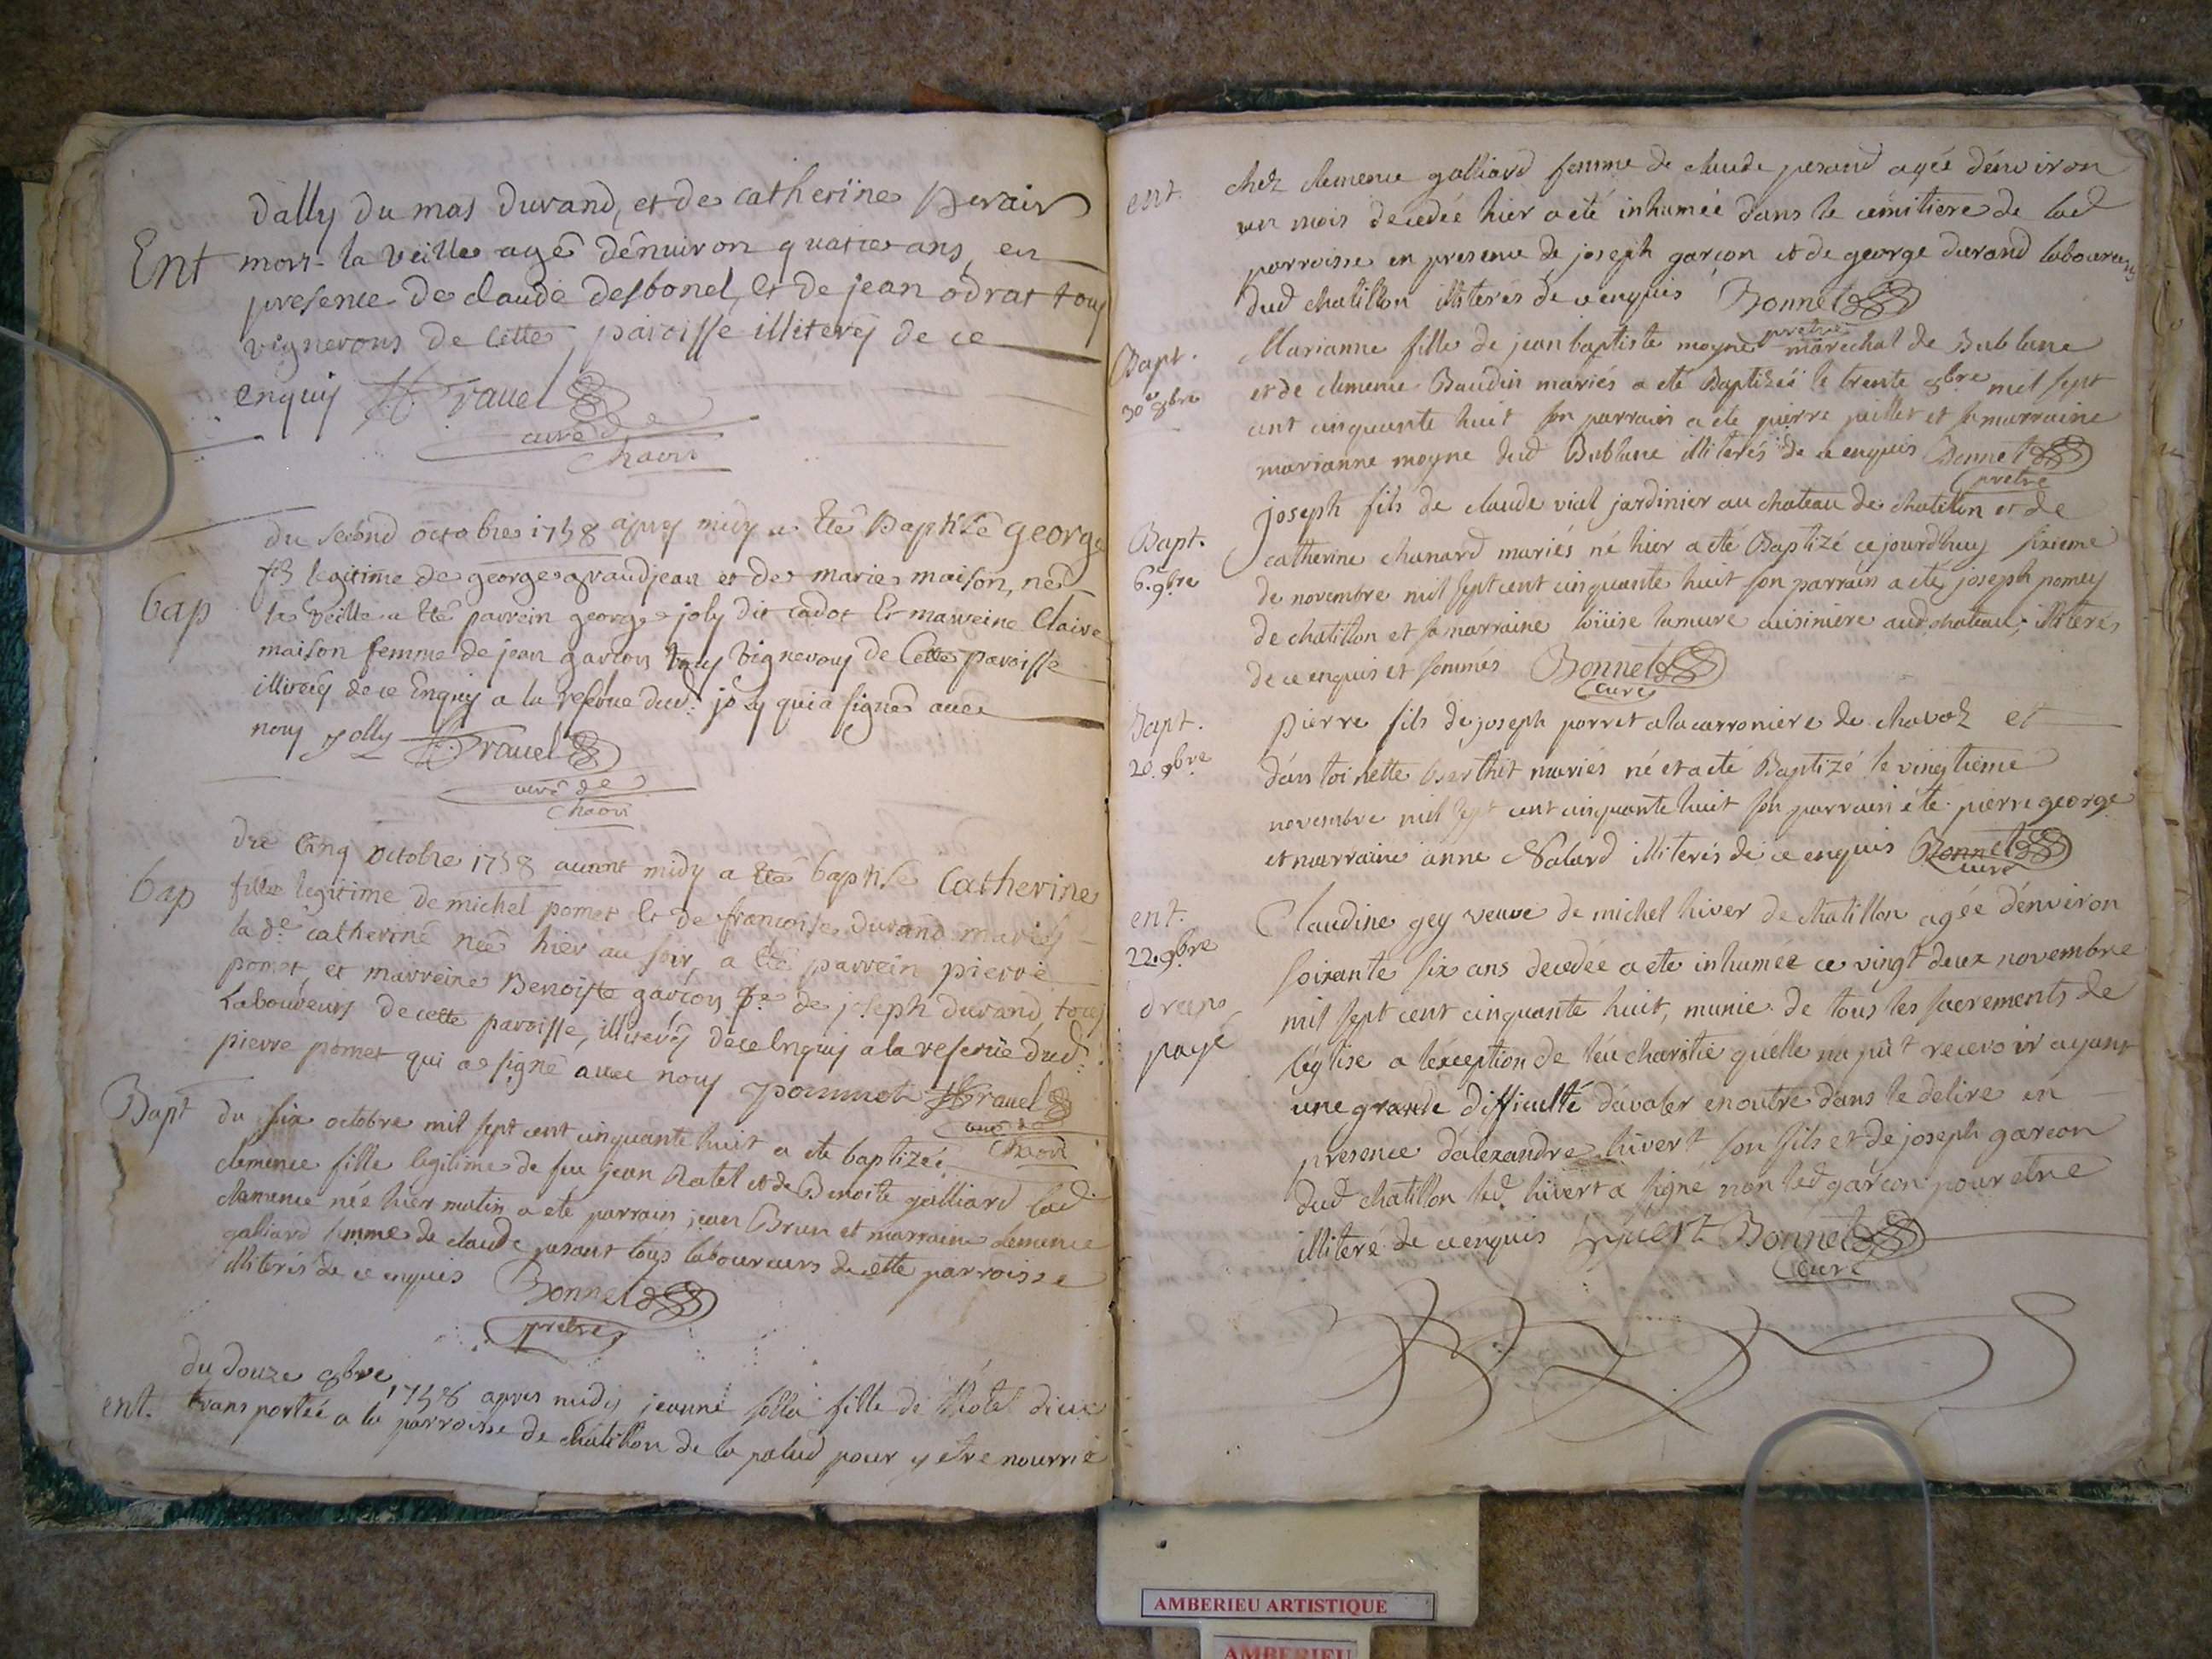 dally du mas durand, et de catherine
Ent mort la veille agé dénuiron quatre ans, en
presence de claude desbonel, et de jean odrat tous
vignerons de cette paroisse illiterés de ce
enquis Travel
curé de
Chaon
du second octobre 1758 apres midy a eté Baptisé george
fils legitime de george grandjean et de marie maison, né
bap la veille a eté parrein george joly dit cadot et marreine Claire
maison femme de jean garçon tous vignerons de Cette paroisse
illiterés de ce Enquis a la reserue dud: joly qui a signé auec
nous jolly Travel
curé de
Chaon
du Cinq octobre 1758 auant midy a eté baptisé Catherine
bap fille legitime de michel pomet et de francoise durand mariés
la de catherine née hier au soir, a eté parrein pierre
pomet, et marreine Benoiste garçon fe de joseph durand, tous
Laboureurs de cette paroisse, illiterés de ce Enquis a la reserüe dud:
pierre pomet qui a signé auec nous pommet Travel
curé de
Chaon
Bapt du six octobre mil sept cent cinquante huit a eté baptizée
clemence fille legitime de feu jean Ratel et de Benoite galliard lad
clemence née hier matin a eté parrain jean Brun et marraine clemence
galliard femme de claude tous laboureurs de cette parroisse
illiterés de ce enquis Bonnet
pretre
du douze 8bre
1758 apres midy jeanne fille de l'hotel dieu
ent. transportée a la parroisse de chatillon de la palud pour y etre nourrie
ent. chez clemence galliard femme de claude agée dénviron
un mois decedée hier a eté inhumée dans le cémitiere de lad
parroisse en presence de joseph garçon et de george durand laboureurs
dud chatillon illiterés de ce enquis Bonnet
pretre
Bapt. Marianne fille de jean baptiste moyne maréchal de Bublane
30e 8bre et de clemence Baudin mariés a eté Baptizée le trente 8bre mil sept
cent cinquante huit son parrain a eté pierre juillet et sa marraine
marianne moyne dud Bublane illiterés de ce enquis Bonnet
pretre
joseph fils de claude vial jardinier au chateau de chatillon et de
Bapt. catherine chanard mariés né hier a eté Baptizé ce jourdhuy sixieme
6. 9bre de novembre mil sept cent cinquante huit son parrain a eté joseph pomey
de chatillon et sa marraine loüise lamure cuisiniere aud chateau; illiterés
de ce enquis et sommés Bonnet
curé
Bapt. pierre fils de joseph porret a la carroniere de chavol et
20. 9bre dántoinette berthet mariés né et a eté Baptizé le vingtieme
novembre mil sept cent cinquante huit son parrain eté pierre george
et marraine anne illiterés de ce enquis Bonnet
curé
ent. Claudine gey veuve de michel hiver de chatillon agée dénviron
22. 9bre soixante six ans decedée a eté inhumée ce vingt deux novembre
mil sept cent cinquante huit, munie de tous les sacrements de
payé léglise a léxception de léucharistie quélle na pût recevoir ayant
une grande difficulté dávaler en outre dans le delire en
presence dálexandre hivert son fils et de joseph garcon
dud chatillon led hivert a signé non led garçon pour etre
illiteré de ce enquis hyuert Bonnet
Curé
AMBERIEU ARTISTIQUE
AMBERIEU